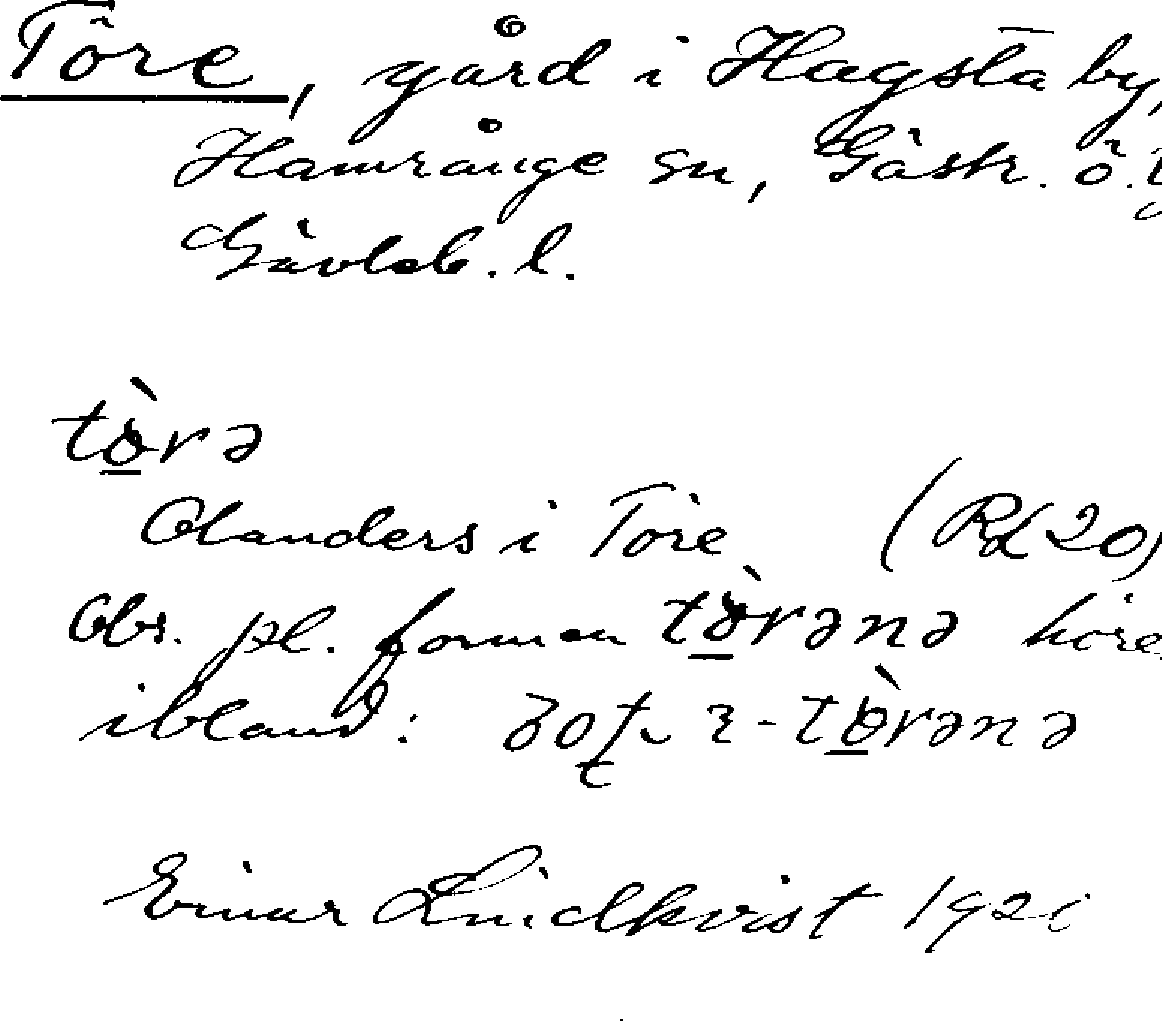 Töre, gård i Hagsta by,
Hamrånge sn, Gästr. ö.
Gävleb. l.
tò̱rə
Olanders i Töre (Rd 20)
Obs. pl. formen tò̱rənə höre
ibland:
Einar Lindkvist 192